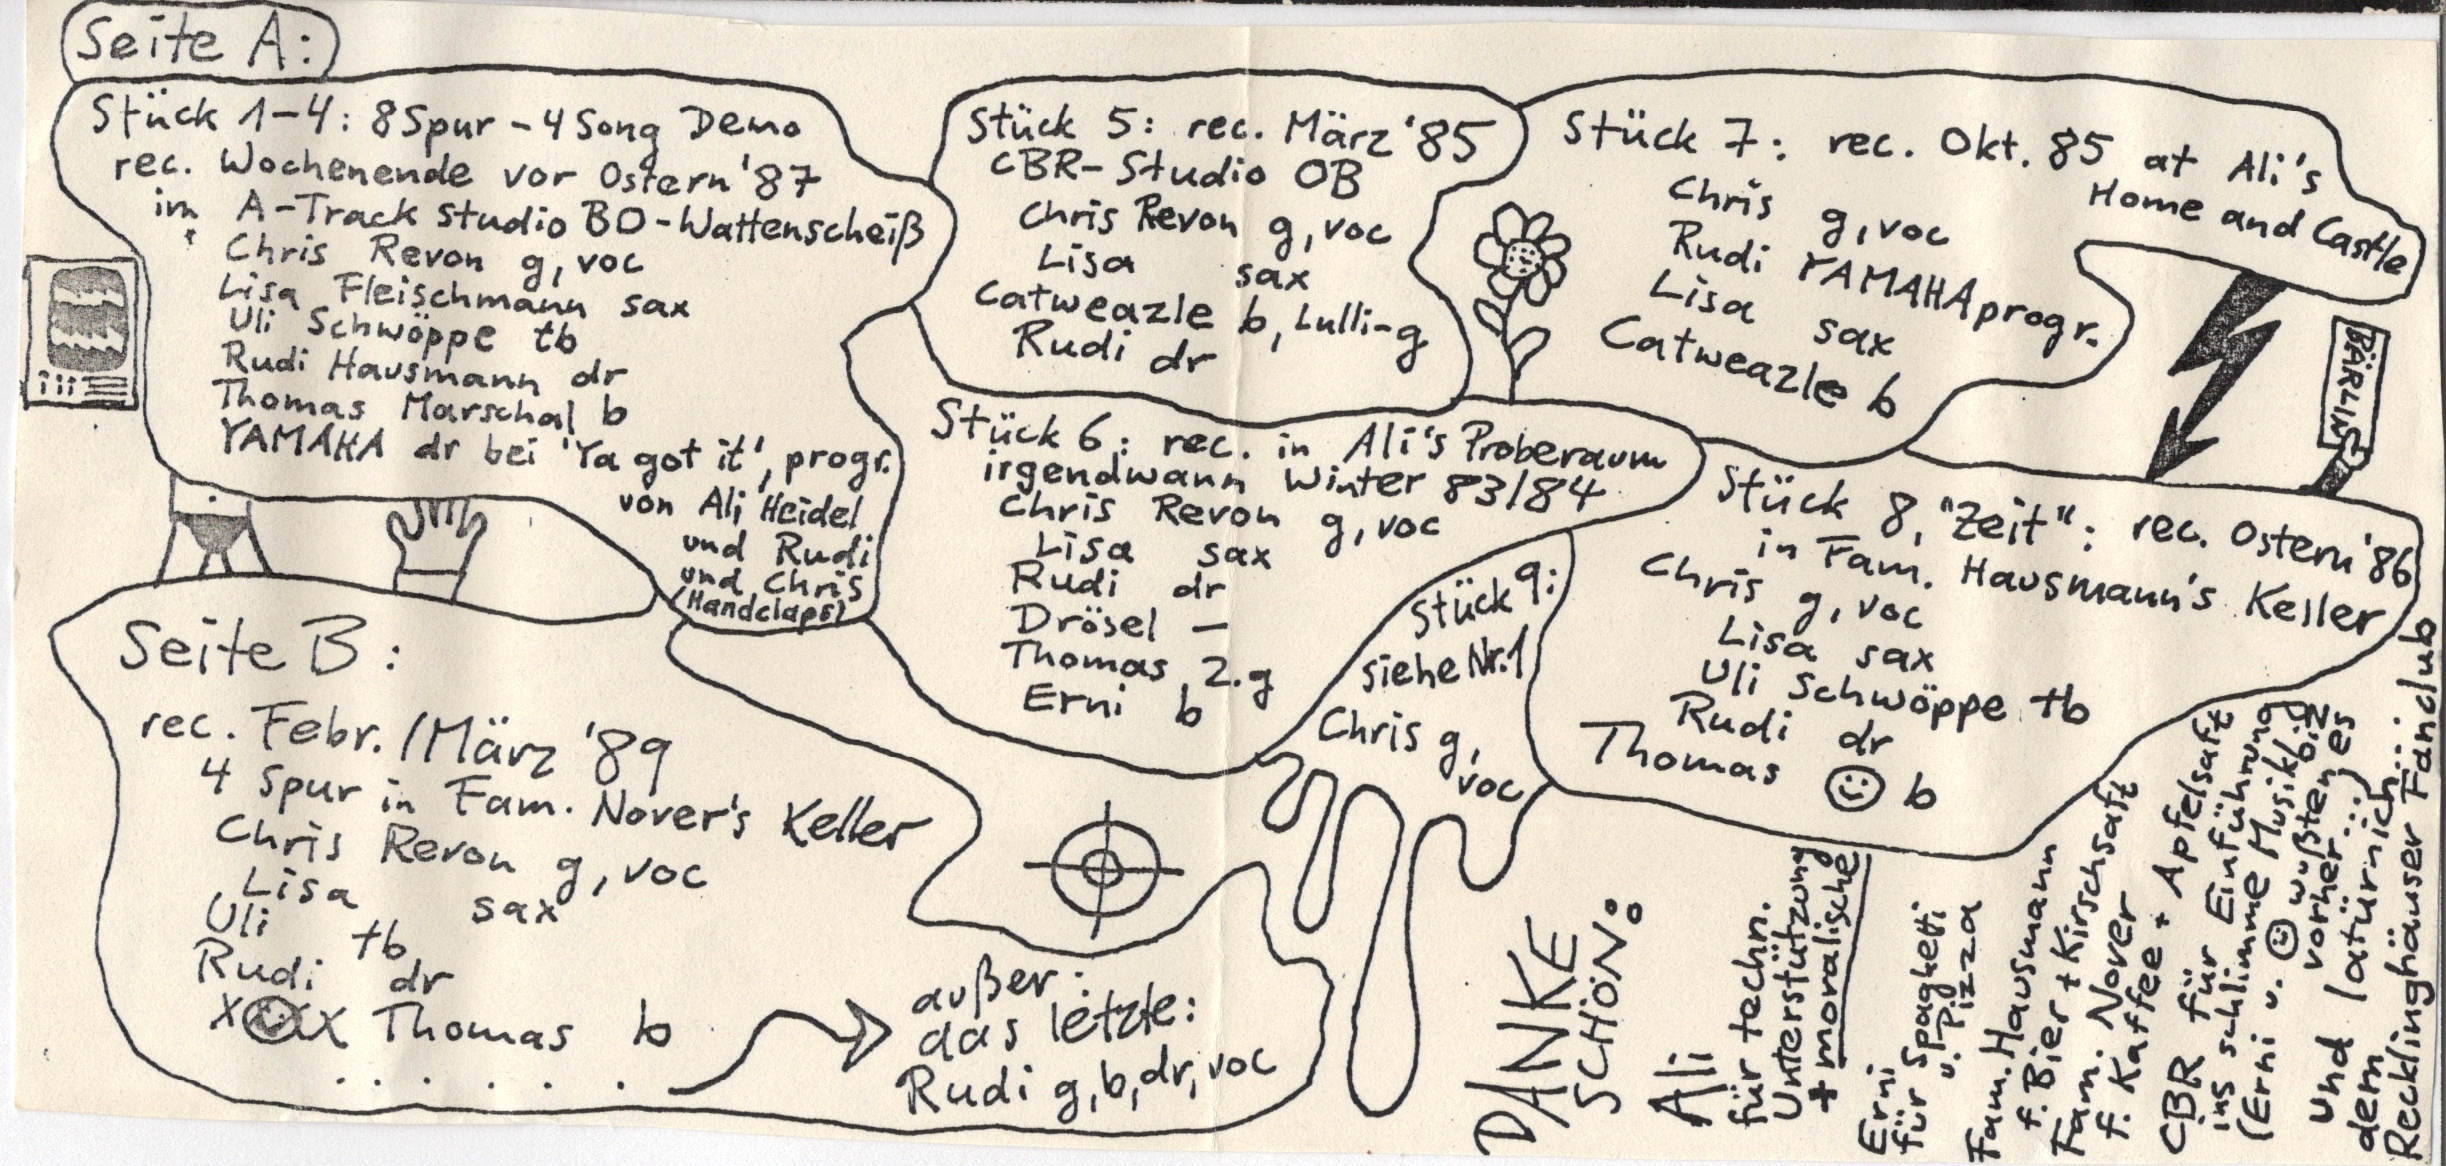 Seite A:
Stück 1-4: 8 Spur - 4 Song Demo
rec. Wochenende vor Ostern '87
im A-Track studio BO-Wattenscheiß
Chris Revon g, voc
Lisa Fleischmann sax
Uli Schwöppe tb
Rudi Hausmann dr
Thomas Marschal b
YAMAHA dr bei 'Ya got it', progr.
von Ali Heidel
und Rudi
und Chris
(Handclaps)
Stück 5: rec. März '85
CBR-Studio OB
Chris Revon g, voc
Lisa sax
Catweazle b, Lulli-g
Rudi dr
Stück 7: rec. Okt. 85 at Ali's
Home and Castle
Chris g, voc
Rudi YAMAHA progr.
Lisa sax
Catweazle b
BÄRLIN
Stück 6: rec. in Ali's Proberaum
irgendwann Winter 83/84
Chris Revon g, voc
Lisa sax
Rudi dr
Drösel —
Thomas 2. g
Erni b
Stück 8, "Zeit": rec. Ostern '86
in Fam. Hausmann's Keller
Chris g, voc
Lisa sax
Uli Schwöppe tb
Rudi dr
Thomas b
Stück 9:
siehe Nr. 1
Chris g,
voc
Seite B:
rec. Febr./März '89
4 Spur in Fam. Nover's Keller
Chris Revon g, voc
Lisa sax
Uli tb
Rudi dr
Thomas b
außer:
das letzte:
Rudi g, b, dr, voc
DANKE
SCHÖN:
Ali
für techn.
Unterstützung
+ moralische
Erni
für Spaghetti
u. Pizza
Fam. Hausmann
f. Bier + Kirschsaft
Fam. Nover
f. Kaffee + Apfelsaft
CBR für Einführung
ins schlimme Musikbiz
(Erni u. ☺ wußten es
vorher...)
und latürnich...
dem
Recklinghäuser Fanclub